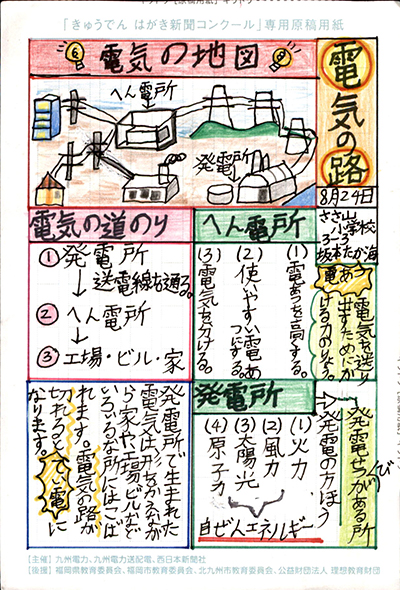 「きゅうでん はがき新聞コンクール」専用原稿用紙
電気の地図
へん電所
発電所
電気の路
8月24日
電あつ
電気を送り
出すためにか
ける力の大きさ。
へん電所
(1)電あつを高する。
(2)使いやすい電あ
つにする。
(3)電気を分ける。
電気の道のり
①発電所
↓送電線を通る。
②へん電所
↓
③工場・ビル・家
発電所
→発電せつびがある所
→発電の方ほう
(1)火力
(2)風力
(3)太陽光
(4)原子力
自ぜんエネルギー
発電所で生まれた
電気は形をかえなが
ら家や、工場ビルなど
いろいろな所にはこば
れます。電気の路が
切れるとてい電に
なります。
【主催】九州電力、九州電力送配電、西日本新聞社
【後援】福岡県教育委員会、福岡市教育委員会、北九州市教育委員会、公益財団法人 理想教育財団